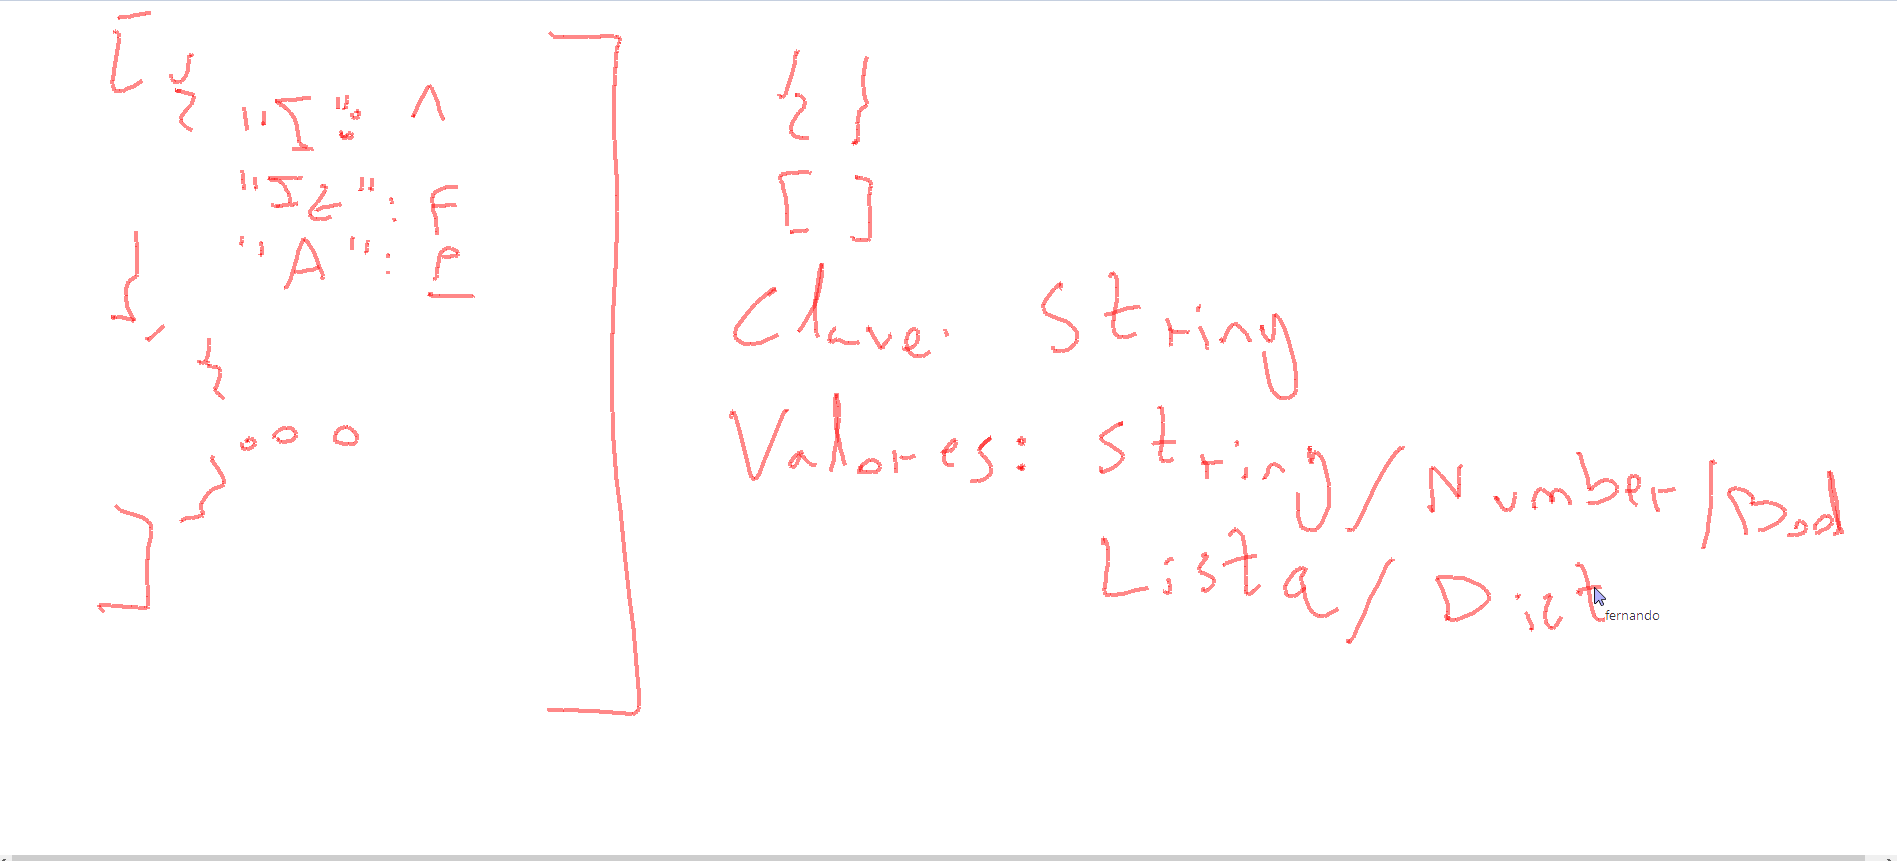 [ {
"I": ^
"It": F
"A": P
},
{
ooo
}
]
{ }
[ ]
Clave: String
Valores: String/Number/Bool
Lista/Dict
fernando